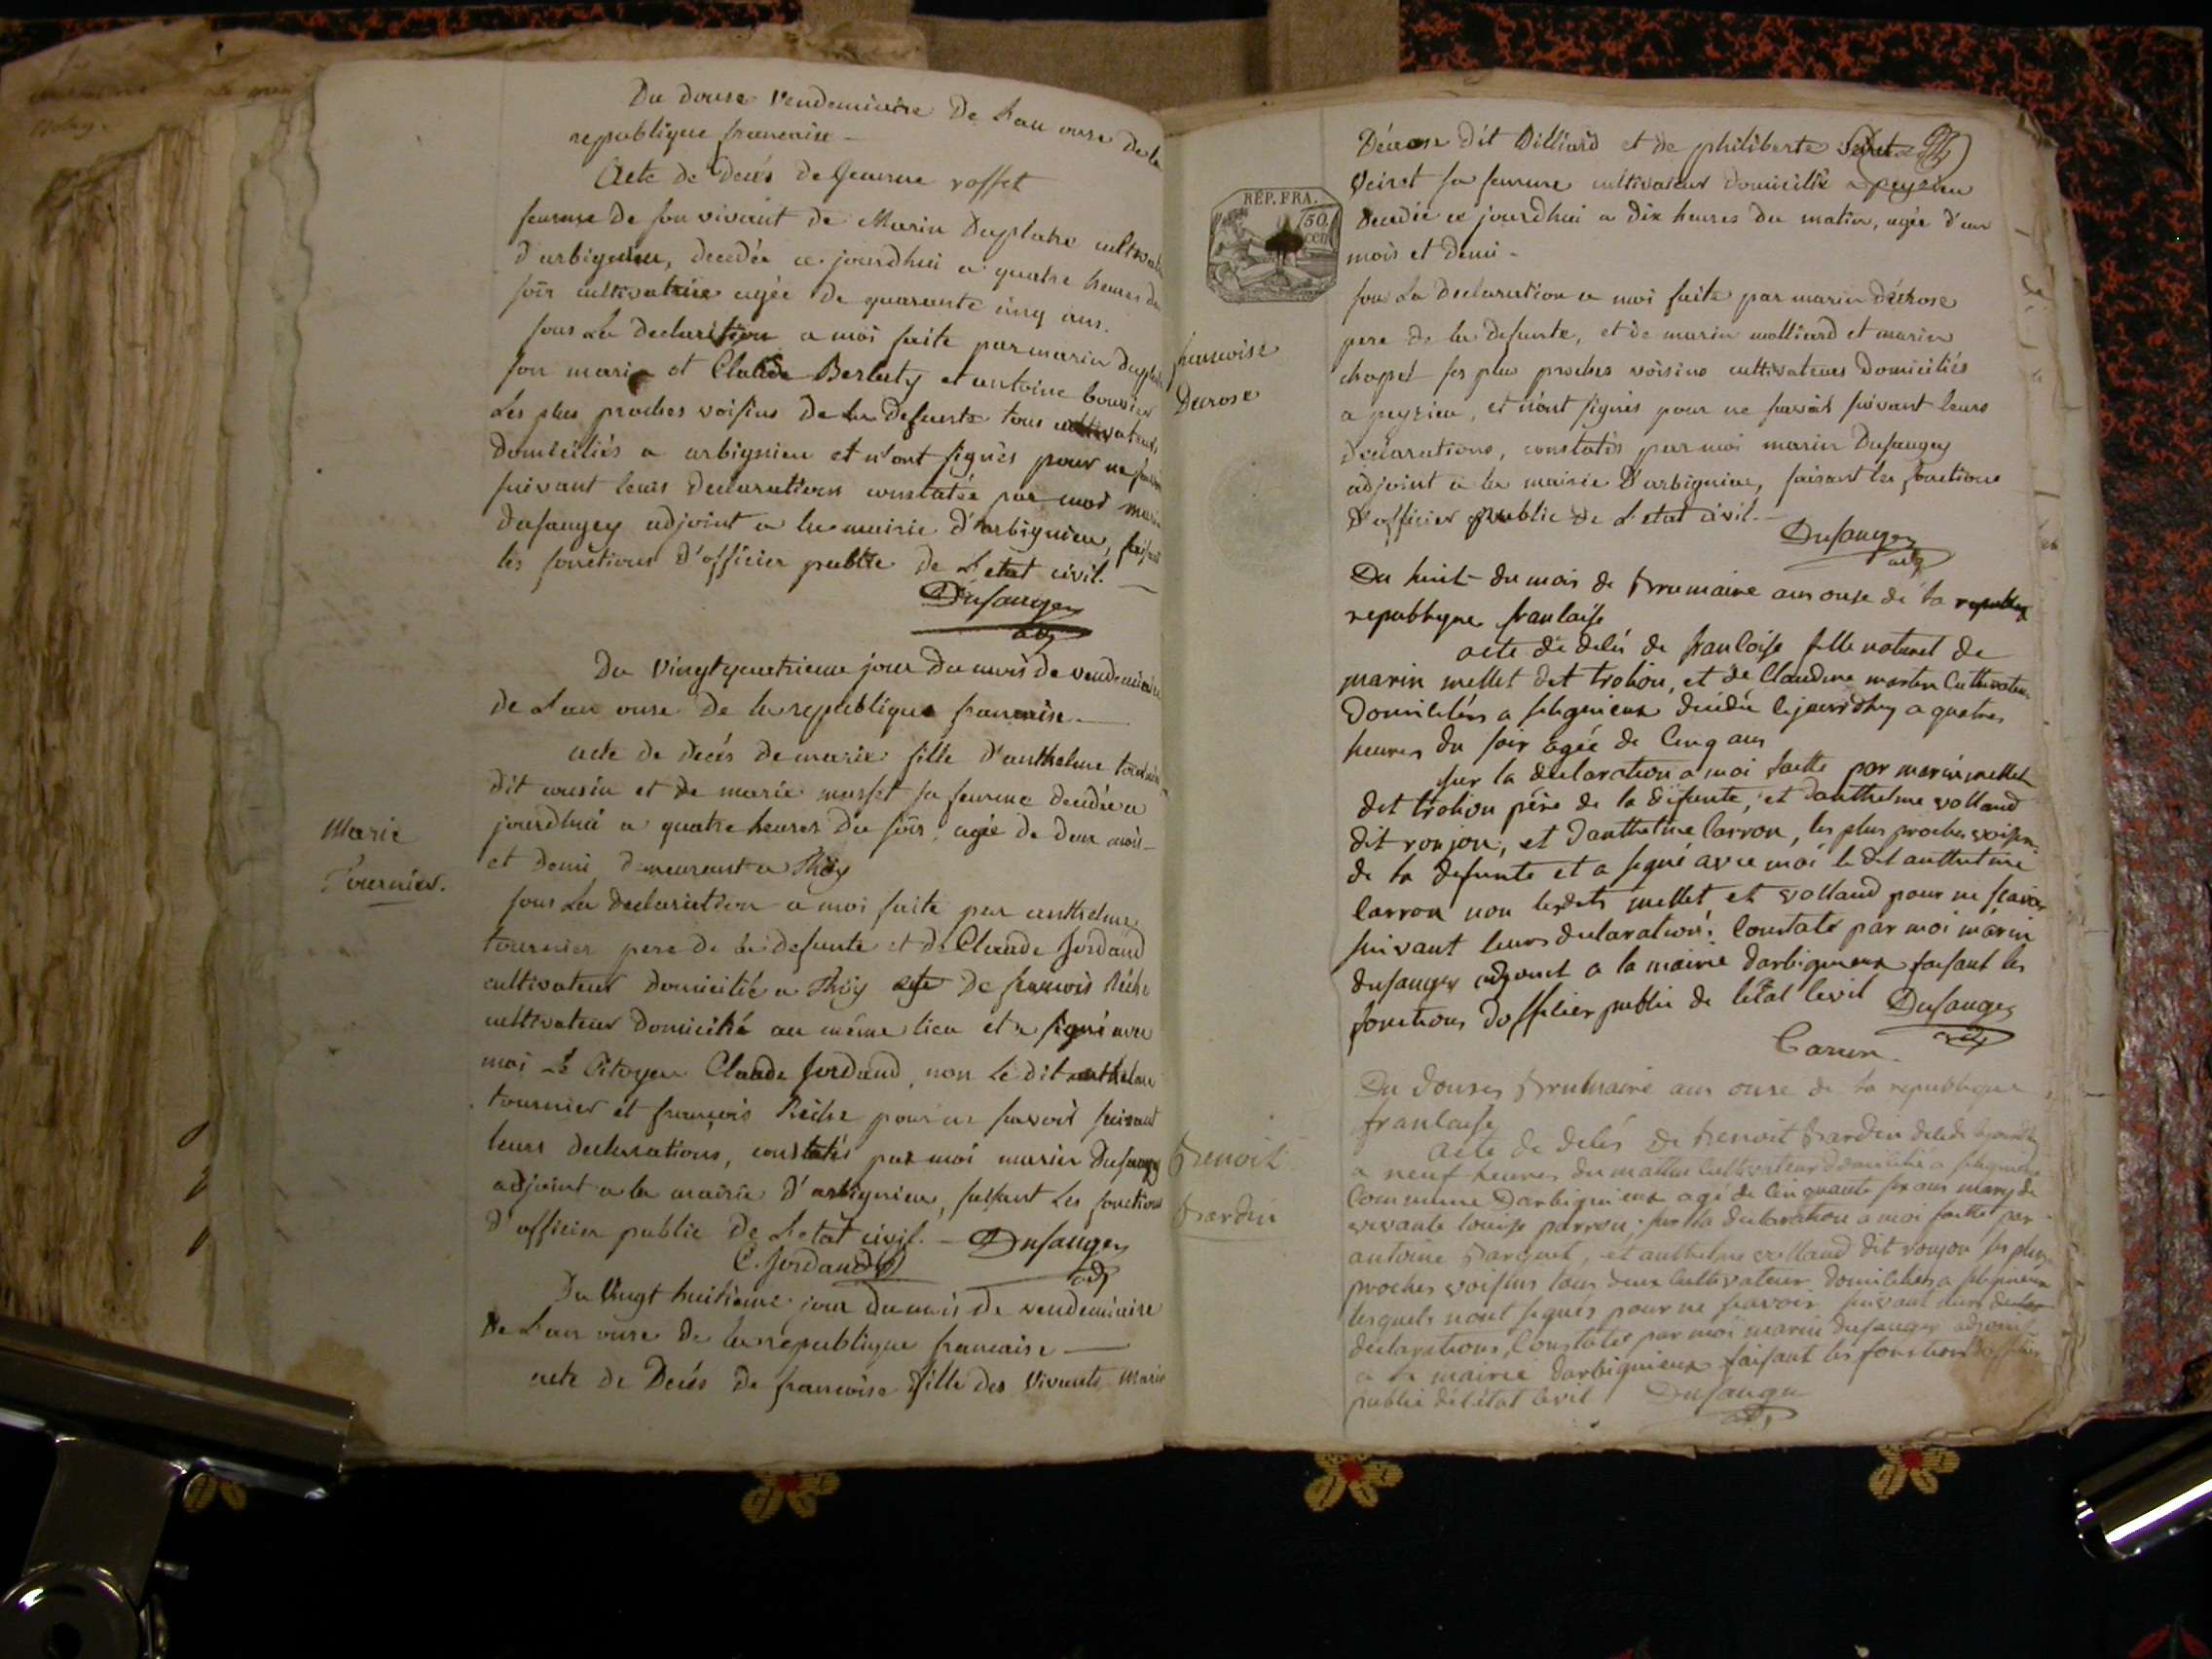 Du douse Vendemiaire De L'an onse de la
republique francaise
Acte de Decés de Jeanne roffet
femme De son vivant de Marin Duplatre
d'arbignieu, decedée ce jourdhui a quatre heures du
soir cultivatrice agée de quarante cinq ans.
sous La declaration a moi faite par marin
son mari et Claude Berlaty et antoine bouvier
Les plus proches voisins De la Defunte tous cultivateurs
domiciliés a arbignieu et n'ont signés pour ne
suivant leurs declarations constatée par moi
dusaugey adjoint a la mairie d'arbignieu,
les fonctions d'officier public de L'etat civil.
Dusaugey
adj
Du Vingtquatrieme jour Du mois de vendemiaire
de L'an onse De la republique francaise
acte de decés de marie fille d'anthelme
dit cousin et de marie masset sa femme decedée a
jourdhui a quatre heures Du soir, agée de deux mois
et demi demeurant a Thoÿ
Marie
Tournier.
sous La declaration a moi faite par anthelme
tournier pere de la defunte et de Claude Jordand
cultivateur domicilié a Thoÿ De francois
cultivateur domicilié au même lieu et a signé avec
moi Le Citoyen Claude Jordand, non le dit anthelme
tournier et françois pour ne savoir suivant
leurs declarations, constatés par moi marin Dusaugey
adjoint a la mairie d'arbignieu, faisant Les fonctions
d'officier public De L'etat civil. Dusaugey
C. Jordand adj
Du Vingt huitieme jour du mois de vendemiaire
De L'an onse de la republique francaise
acte de Decés de francoise fille des Vivants Marin
Décrose dit Billiard et de philiberte
Veiret sa femme cultivateur domicilié a peyzieu
decedée ce jourdhui a dix heures du matin, agée d'un
mois et demi
REP. FRA.
50
cen
francoise
Decrose
sou La declaration a moi faite par marin décrose
pere de la defunte, et de marin molliard et marin
chapel ses plus proches voisins cultivateurs domiciliés
a peyzieu, et n'ont signés pour ne savoir suivant leurs
declarations, constatés par moi marin Dusaugey
adjoint a la mairie d'arbignieu, faisant les fonctions
d'officier public de L'etat civil.
Dusaugey
adj
Du huit du mois de Brumaire an onse de la
republique francaise
acte de decés de francoise fille naturel de
marin mellet dit trolion, et de Claudine martin Cultivateur
Domiciliés a selignieux decédée cejourdhuy a quatres
heures du soir agée de Cinq ans
sur la déclaration a moi faitte par marin mellet
dit trolion père de la défunte, et danthelme volland
dit ronjon, et danthelme Carron, les plus proches voisins
de la defunte et a signé avec moi le dit anthelme
Carron non lesdits mellet et volland pour ne scavoir
suivant leurs declaration. Constaté par moi marin
dusaugey adjoint a la mairie darbignieux faisant les
fonctions dofficier public de létat Civil Dusaugey
Caron adj
Du douses Brumaire an onse de la republique
francaise
Benoit
Bardin
Acte de decés de Benoit Bardin decede
a neuf heures du mattin Cultivateur domicilié a selignieux
Commune Darbignieux agé de Cinquante six ans mary de
vivante louise parron, sur la declaration a moi faitte par
antoine Parquet, et anthelme volland dit ronjon ses plus
proches voisins tous deux Cultivateur domiciliés a selignieux
lesquels nont signés pour ne scavoir suivant leurs
declarations, Constatés par moi marin dusaugey adjoint
a la mairie darbignieux faisant les fonctions dofficier
public de létat Civil Dusaugey
adj